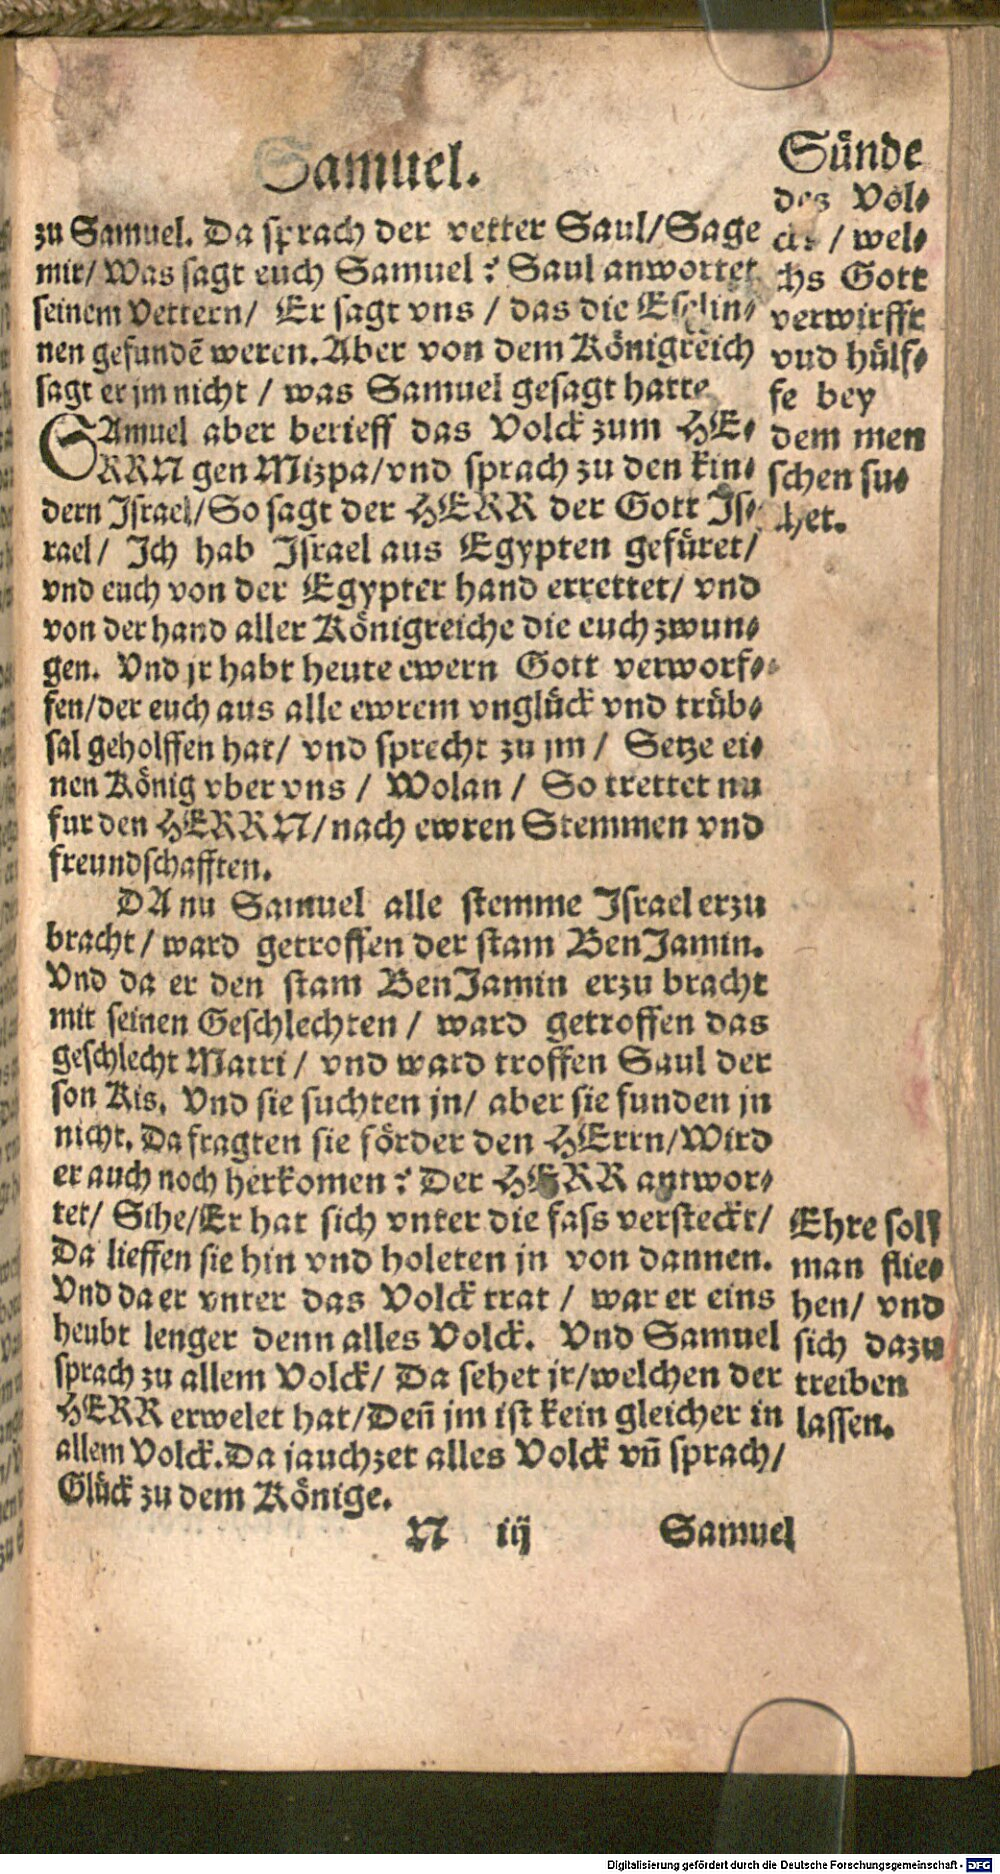 Samuel.
zu Samuel. Da sprach der vetter Saul/Sage
mir/ Was sagt euch Samuel? Saul anwortet
seinem Vettern/ Er sagt vns / das die Eselin⸗
nen gefundē weren. Aber von dem Königreich
sagt er jm nicht / was Samuel gesagt hatte
SAmuel aber berieff das Volck zum HE⸗
RRN gen Mizpa/vnd sprach zu den kin⸗
dern Israel/So sagt der HERR der Gott Js⸗
rael/ Ich hab Israel aus Egypten gefüret/
vnd euch von der Egypter hand errettet/ vnd
von der hand aller Königreiche die euch zwun⸗
gen. Vnd jr habt heute ewern Gott verworf⸗
fen/der euch aus alle ewrem vnglück vnd trüb⸗
sal geholffen hat/ vnd sprecht zu jm / Setze ei⸗
nen König vber vns / Wolan / So trettet nu
fur den HERRN/nach ewren Stemmen vnd
freundschafften.
DA nu Samuel alle stemme Israel erzu
bracht / ward getroffen der stam BenJamin.
Vnd da er den stam BenJamin erzu bracht
mit seinen Geschlechten / ward getroffen das
geschlecht Matri / vnd ward troffen Saul der
son Kis. Vnd sie suchten jn/ aber sie funden jn
nicht. Da fragten sie förder den HErrn/Wird
er auch noch herkomen? Der HERR antwor⸗
tet/ Sihe/Er hat sich vnter die fass versteckt/
Da lieffen sie hin vnd holeten jn von dannen.
Vnd da er vnter das Volck trat / war er eins
heubt lenger denn alles Volck. Vnd Samuel
sprach zu allem Volck/ Da sehet jr/welchen der
HERR erwelet hat/Deñ jm ist kein gleicher in
allem Volck. Da jauchzet alles Volck vñ sprach/
Glück zu dem Könige.
N iij Samuel
Sünde
des Vol⸗
/ wel⸗
chs Gott
verwirfft
vnd hülf⸗
fe bey
dem men
schen su⸗
chet.
Ehre soll
man flie⸗
hen/ vnd
sich dazu
treiben
lassen.
Digitalisierung gefördert durch die Deutsche Forschungsgemeinschaft - DFG